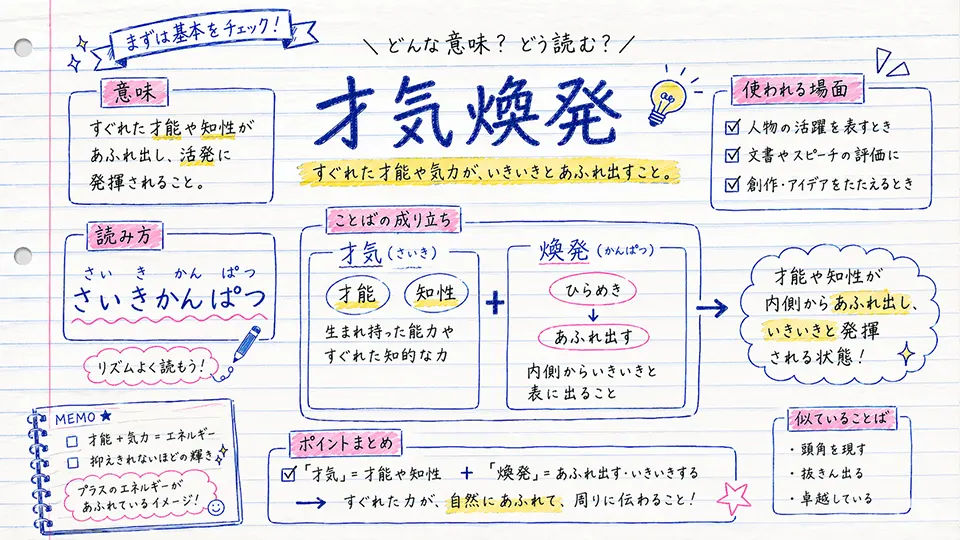 まずは基本をチェック！
どんな意味？ どう読む？
才気煥発
すぐれた才能や気力が、いきいきとあふれ出すこと。
意味
すぐれた才能や知性が
あふれ出し、活発に
発揮されること。
使われる場面
人物の活躍を表すとき
文書やスピーチの評価に
創作・アイデアをたたえるとき
読み方
さい き かん ぱつ
さいきかんぱつ
リズムよく読もう！
ことばの成り立ち
才気（さいき）
才能 知性
生まれ持った能力や
すぐれた知的な力
+
煥発（かんぱつ）
ひらめき
↓
あふれ出す
内側からいきいきと
表に出ること
→
才能や知性が
内側からあふれ出し、
いきいきと発揮
される状態！
MEMO ★
才能＋気力＝エネルギー
抑えきれないほどの輝き
プラスのエネルギーが
あふれているイメージ！
ポイントまとめ
「才気」＝才能や知性 ＋ 「煥発」＝あふれ出す・いきいきする
→ すぐれた力が、自然にあふれて、周りに伝わること！
似ていることば
・頭角を現す
・抜きん出る
・卓越している